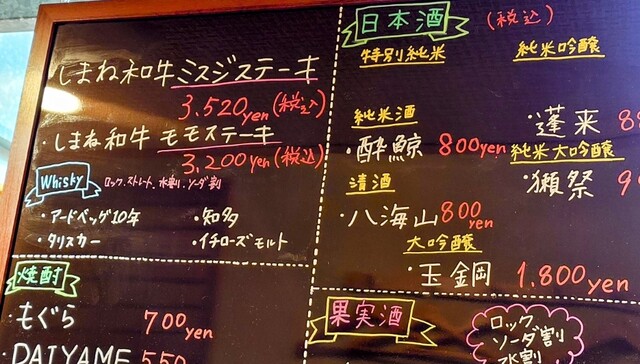 しまね和牛ミスジステーキ
3,520yen(税込)
・しまね和牛 モモステーキ
3,200yen(税込)
Whisky ロック、ストレート、水割、ソーダ割
・アードベッグ10年 ・知多
・タリスカー ・イチローズモルト
焼酎
・もぐら 700yen
DAIYAME 550
日本酒 (税込)
特別純米 純米吟醸
純米酒
・酔鯨 800yen
・蓬来
純米大吟醸
・獺祭
清酒
・八海山 800yen
大吟醸
・玉鋼 1,800yen
果実酒
ロック、
ソーダ割
水割